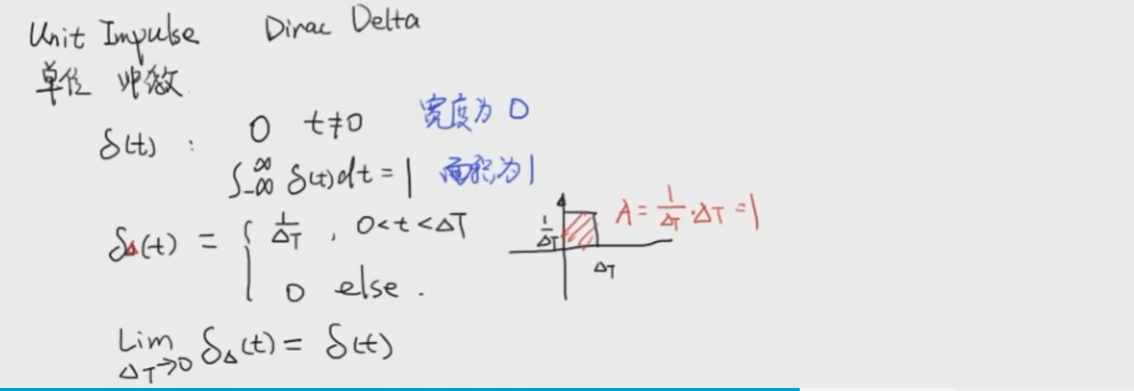 Unit Impulse Dirac Delta
单位 冲激
δ(t) : 0 t≠0 宽度为 0
∫_{-∞}^{∞} δ(t)dt = 1 面积为1
δ_Δ(t) = { 1/ΔT , 0<t<ΔT
0 else .
1/ΔT A = 1/ΔT · ΔT = 1
ΔT
Lim_{ΔT→0} δ_Δ(t) = δ(t)